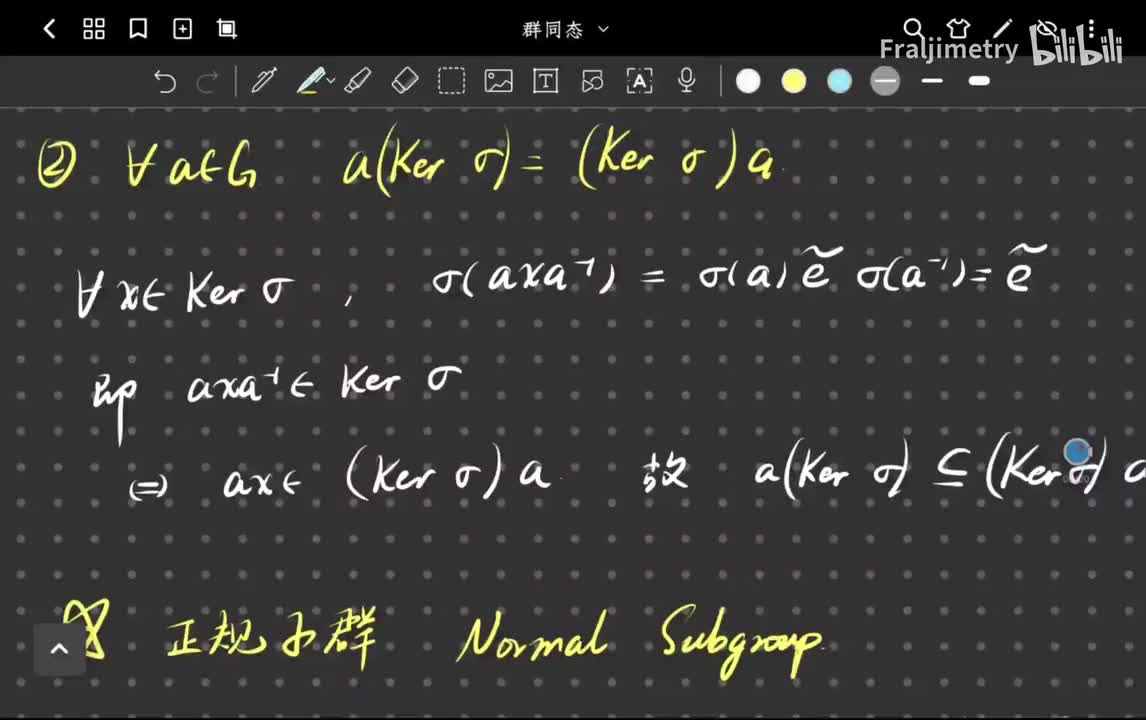 群同态
Fraljimetry bilibili
② ∀ a∈G a(Ker σ) = (Ker σ)a
∀ x∈ Ker σ , σ(axa⁻¹) = σ(a) ẽ σ(a⁻¹) = ẽ
即 axa⁻¹ ∈ Ker σ
⇔ ax ∈ (Ker σ) a 故 a(Ker σ) ⊆ (Ker σ) a
正规子群 Normal Subgroup